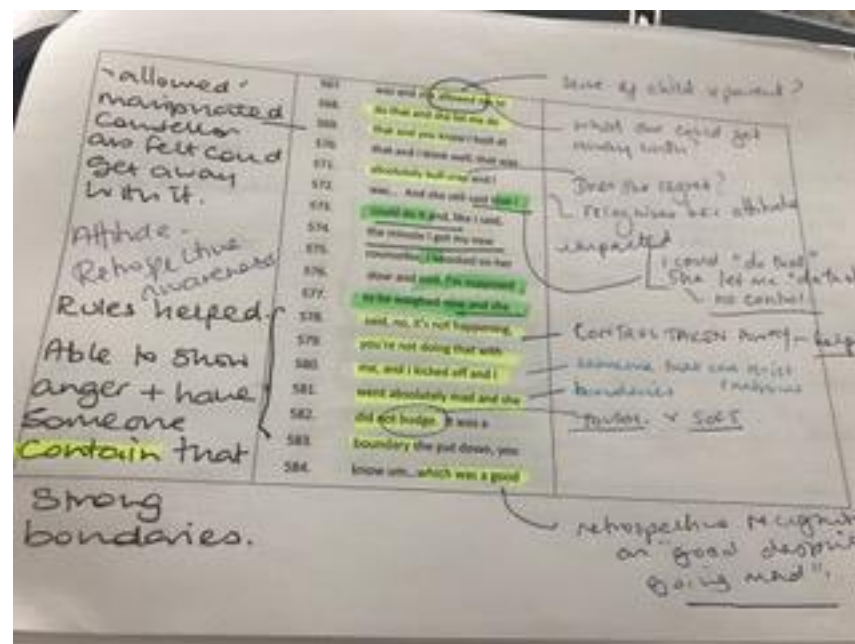 "allowed"
manipulated
Counsellor
and felt could
get away
with it.
Attitude -
Retrospective
awareness
Rules helped
Able to show
anger + have
someone
contain that
Strong
bondaries.
567. was and she allowed me to
568. do that and she let me do
569. that and you know I look at
570. that and I think well, that was
571. absolutely bull crap and I
572. was... And she just said that I
573. could do it and, like I said,
574. the minute I got my new
575. counsellor, I knocked on her
576. door and said, I'm supposed
577. to be weighed now and she
578. said, no, it's not happening,
579. you're not doing that with
580. me, and I kicked off and I
581. went absolutely mad and she
582. did not budge. It was a
583. boundary she put down, you
584. know um.. which was a good
sense of child v parent?
what she could get
away with?
Does she regret?
recognises her attitude
impacted
I could "do that"
She let me "do that"
no control
CONTROL TAKEN AWAY -
someone that can
boundaries
v SOFT
retrospective
on "good despite
going mad".